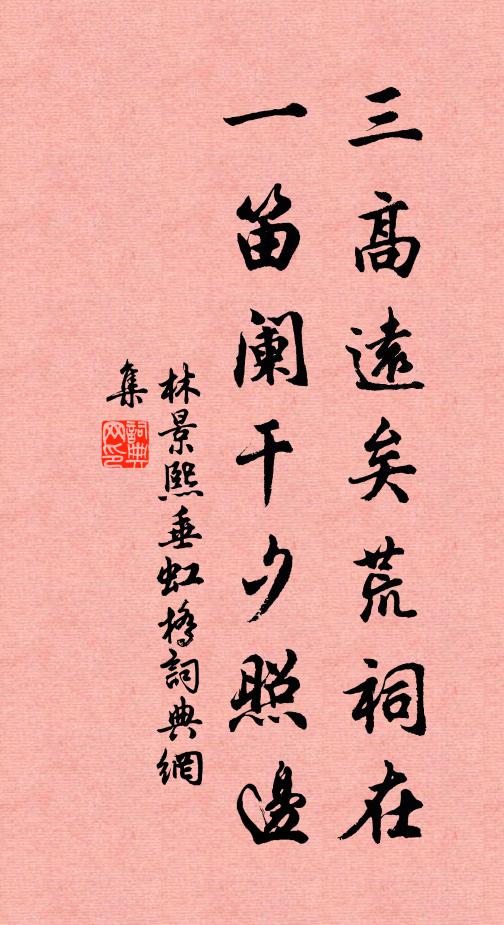 三高遠矣荒祠在
一笛阑干夕照邊
林景熙垂虹橋詞典網
集
詞典网印